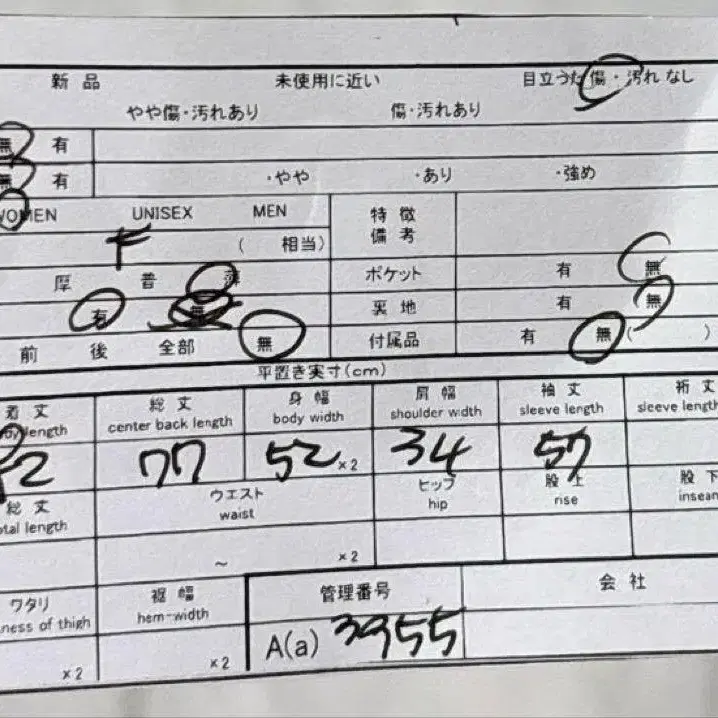 新品 未使用に近い 目立うた傷・汚れ なし
やや傷・汚れあり 傷・汚れあり
無 有
無 有 ・やや ・あり ・強め
WOMEN UNISEX MEN 特徴
備考
F ( 相当)
厚 普 薄 ポケット 有 無
有 無 裏地 有 無
前 後 全部 無 付属品 有 無 ( )
平置き実寸(cm)
着丈 総丈 身幅 肩幅 袖丈 裄丈
length center back length body width shoulder width sleeve length sleeve length
77 52 ×2 34 57
総丈 ウエスト ヒップ 股上 股下
total length waist hip rise inseam
~ ×2
ワタリ 裾幅 管理番号 会社
ness of thigh hem-width
×2 ×2 A(a) 3955